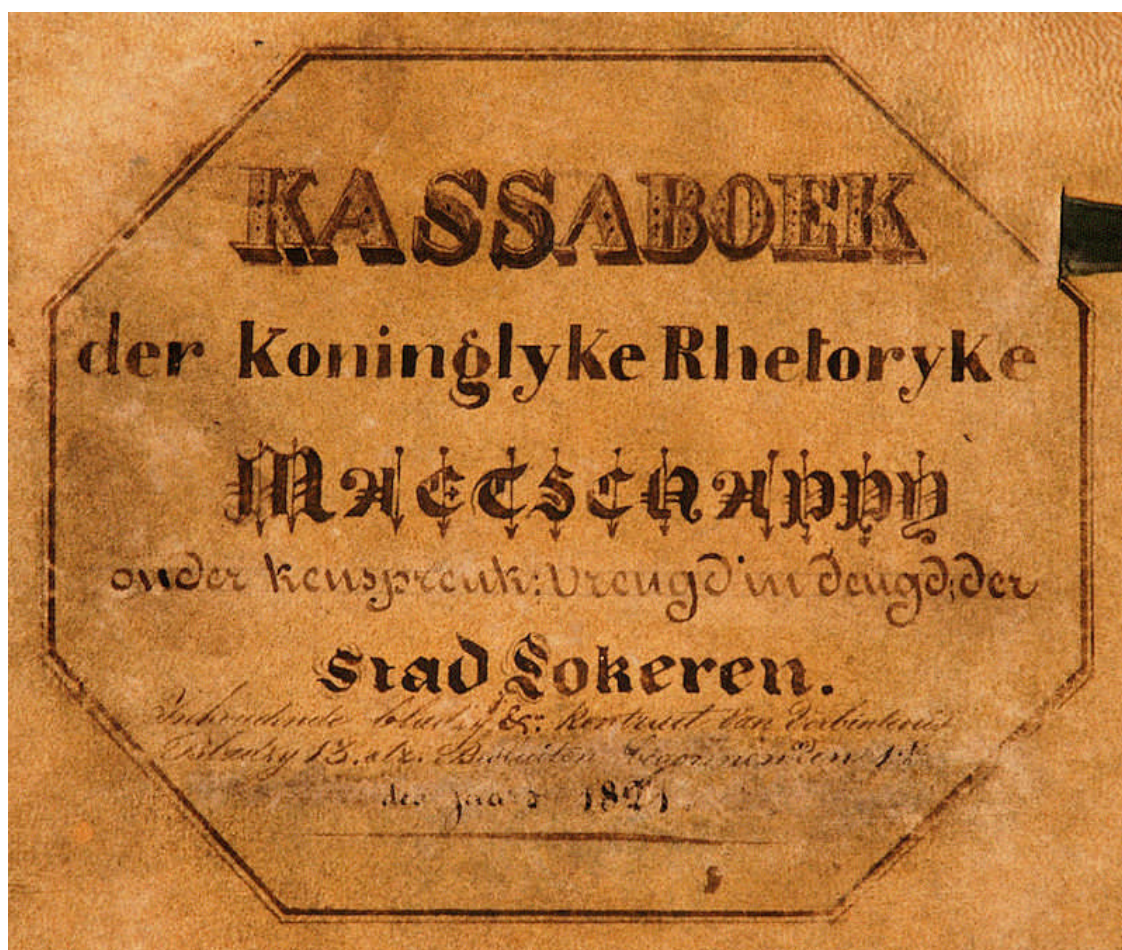 KASSABOEK
der Koninglyke Rhetoryke
MAETSCHAPPY
onder kenspreuk: Vreugd in Deugd; der
stad Lokeren.
Inhoudende bladz. &c: Kontract van Verbintenis
13. Besluiten, begonnen den 1:
des jaars 1821.